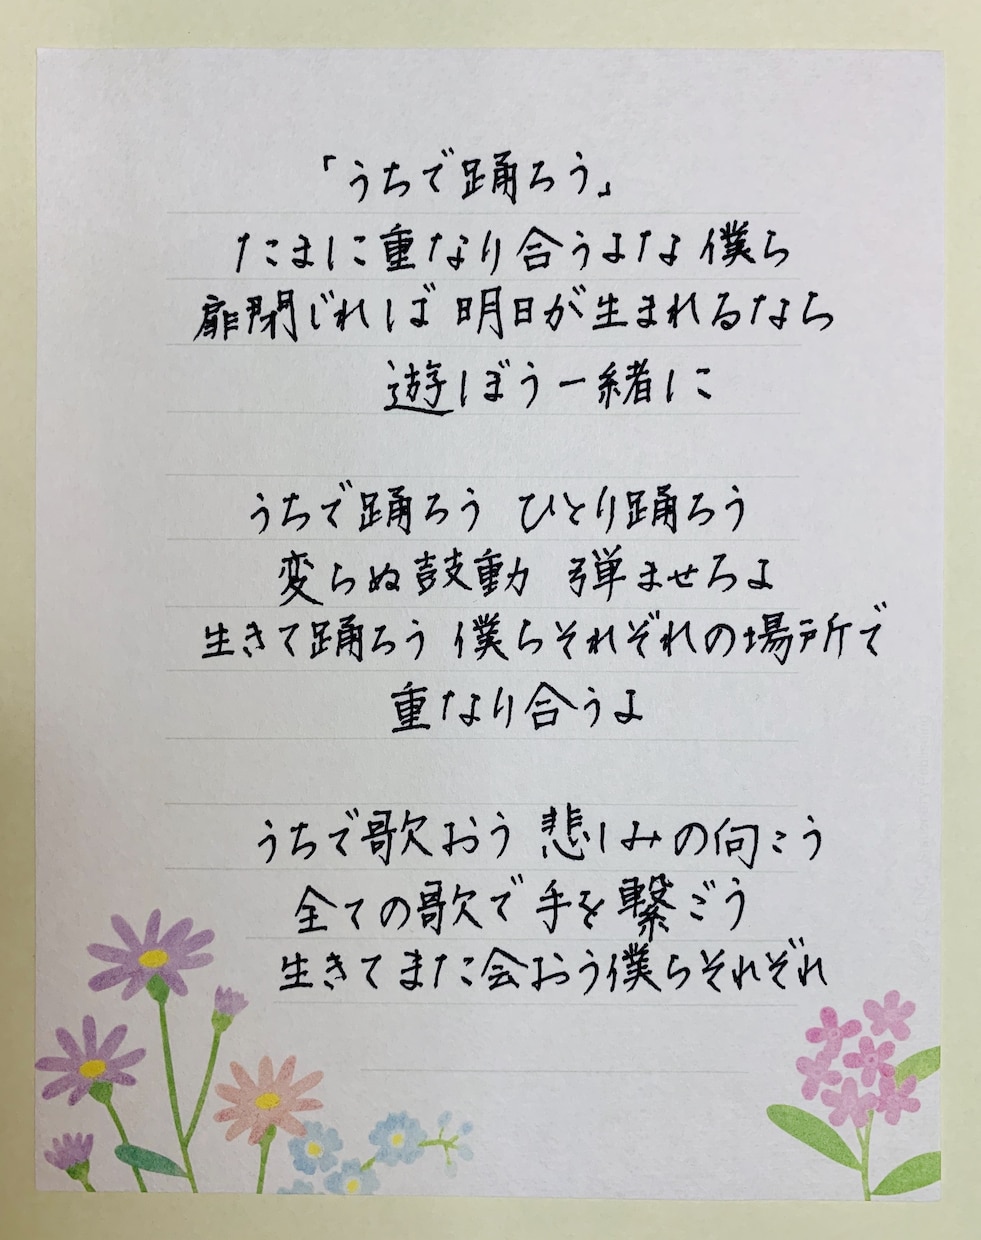 「うちで踊ろう」
たまに重なり合うよな僕ら
扉閉じれば明日が生まれるなら
遊ぼう一緒に
うちで踊ろう ひとり踊ろう
変らぬ鼓動 弾ませろよ
生きて踊ろう 僕らそれぞれの場所で
重なり合うよ
うちで歌おう 悲しみの向こう
全ての歌で 手を繋ごう
生きてまた会おう僕らそれぞれ